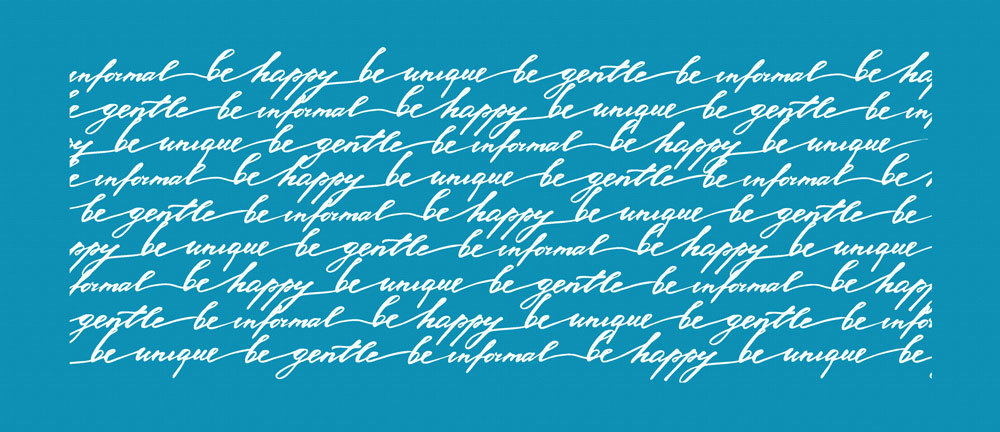 informal be happy be unique be gentle be informal be ha
e gentle be informal be happy be unique be gentle be in
y be unique be gentle be informal be happy be unique
e informal be happy be unique be gentle be informal be
be gentle be informal be happy be unique be gentle be
ppy be unique be gentle be informal be happy be unique
formal be happy be unique be gentle be informal be happ
gentle be informal be happy be unique be gentle be info
be unique be gentle be informal be happy be unique be